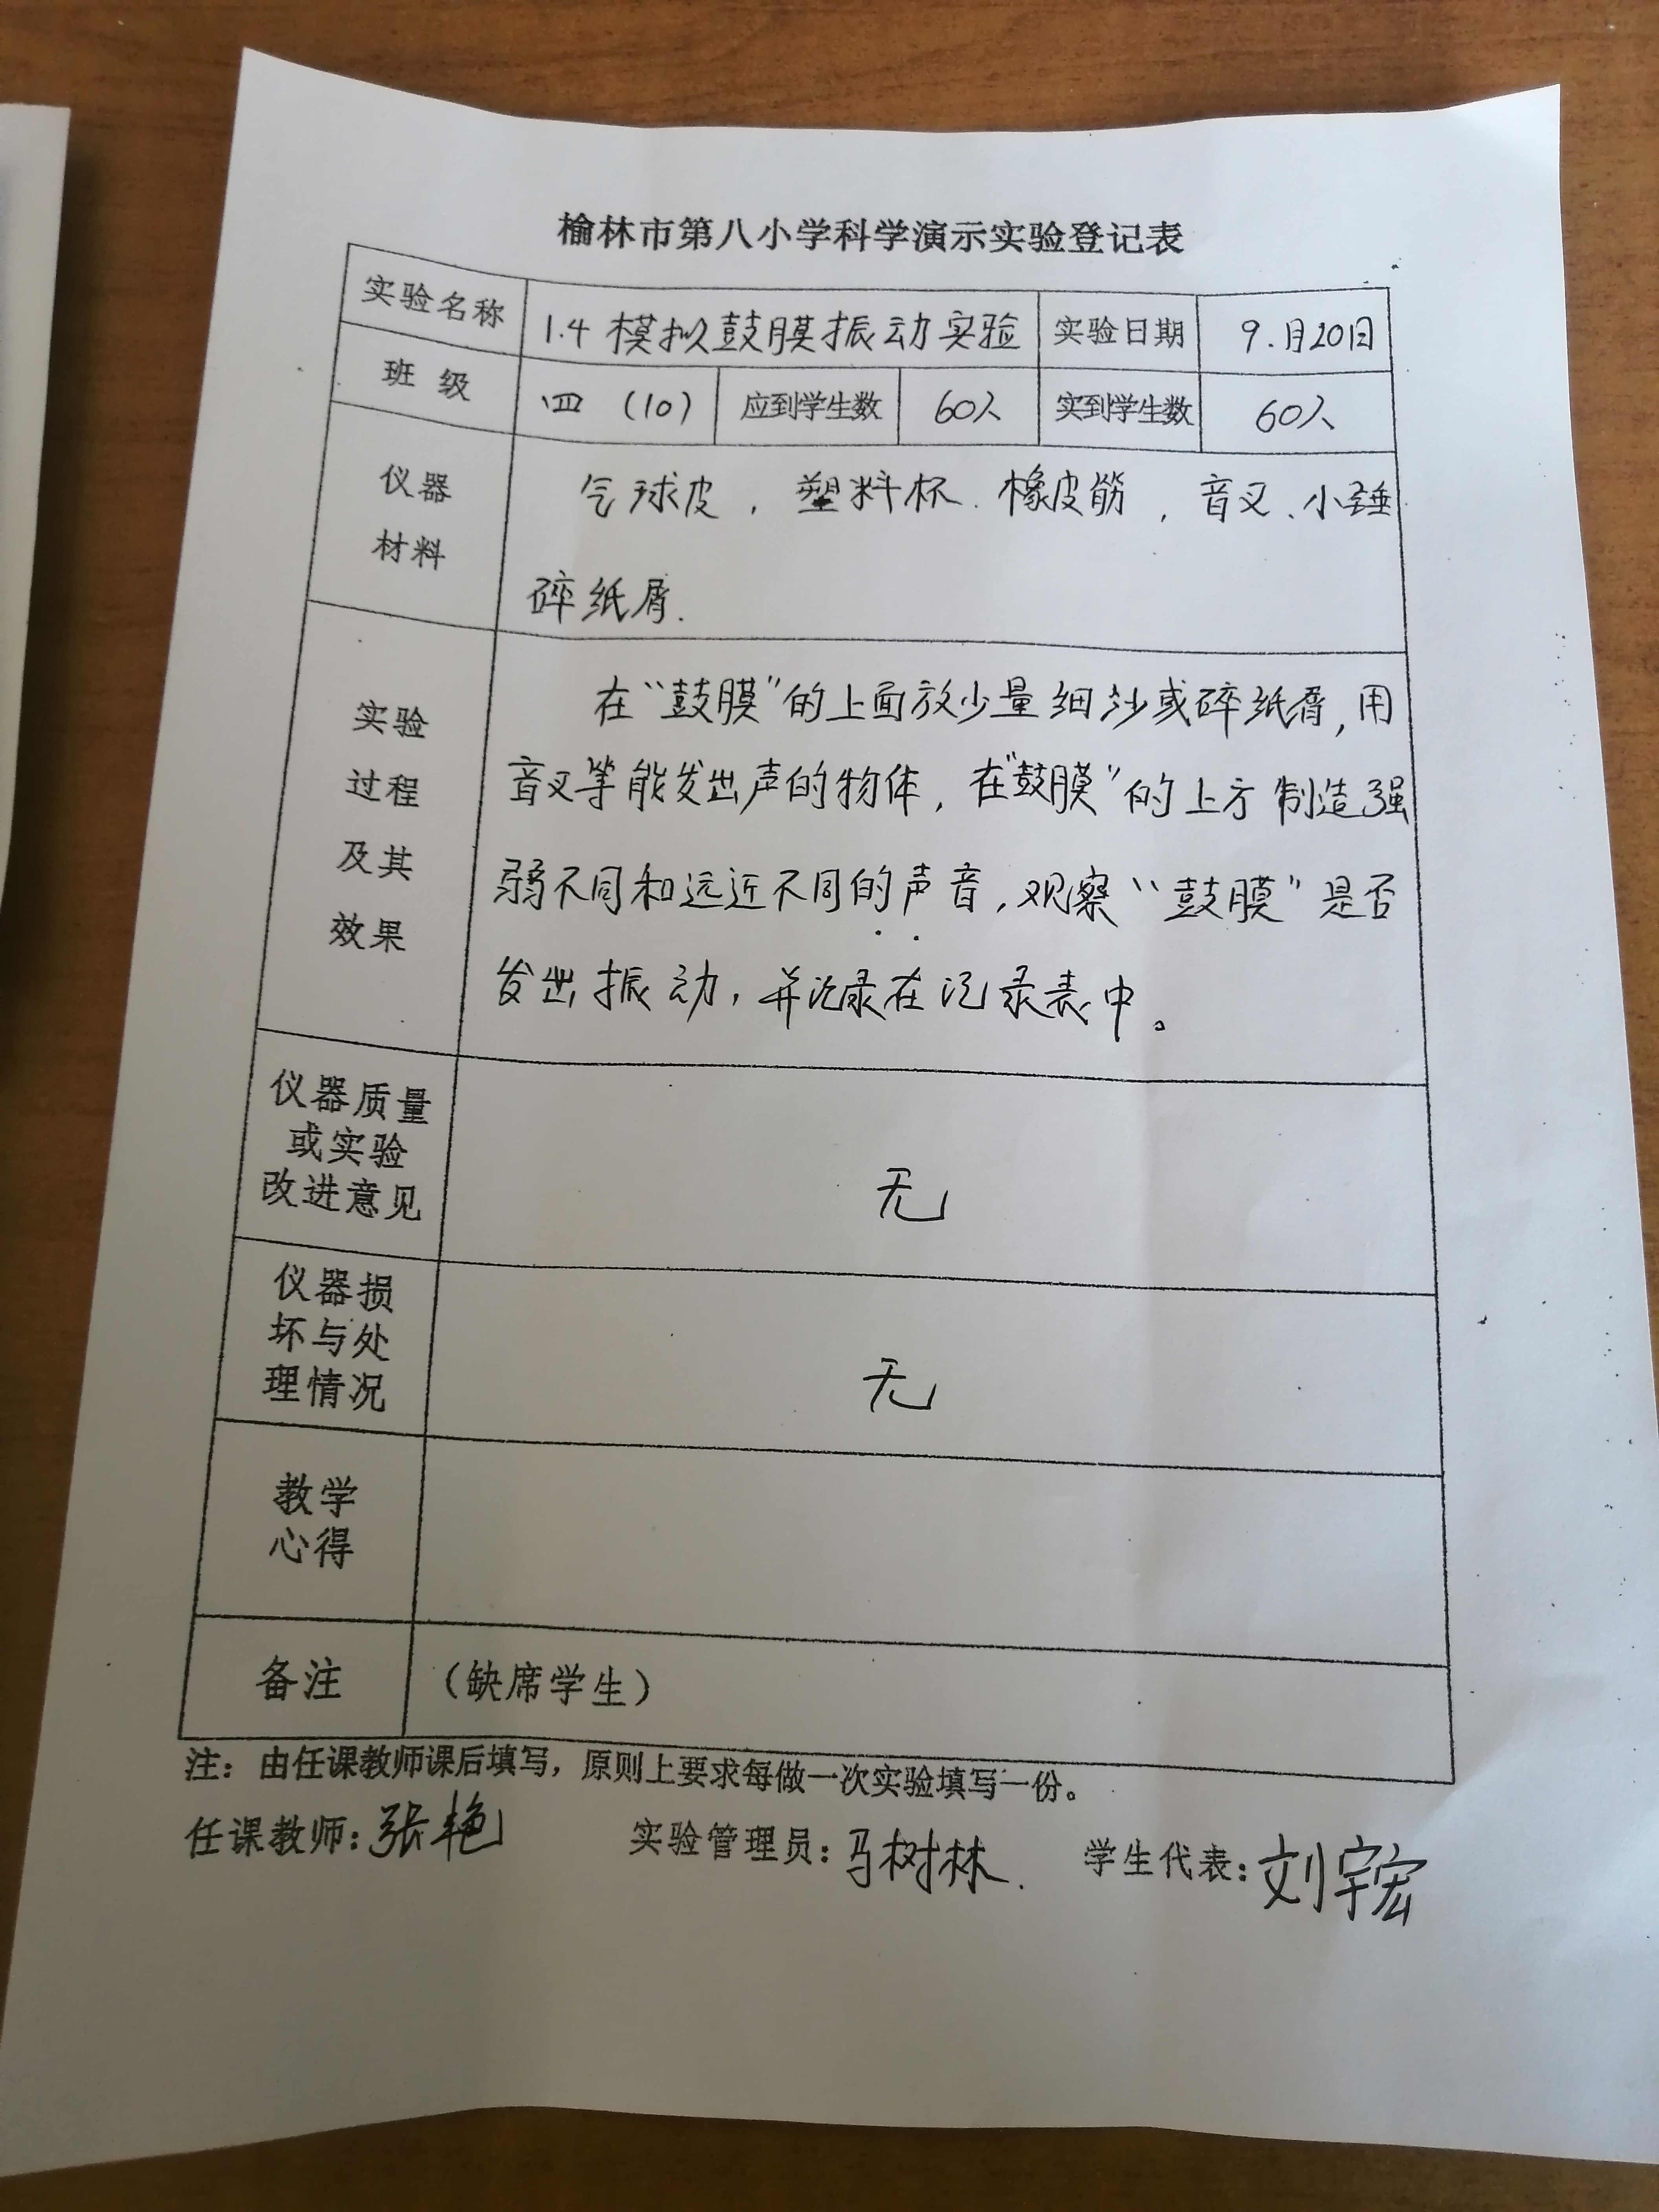 榆林市第八小学科学演示实验登记表
实验名称 1.4 模拟鼓膜振动实验 实验日期 9.月20日
班 级 四 (10) 应到学生数 60人 实到学生数 60人
仪器
材料
气球皮，塑料杯.橡皮筋，音叉、小锤
碎纸屑.
实验
过程
及其
效果
在“鼓膜”的上面放少量细沙或碎纸屑,用
音叉等能发出声的物体,在“鼓膜”的上方制造强
弱不同和远近不同的声音,观察“鼓膜”是否
发出振动,并记录在记录表中。
仪器质量
或实验
改进意见
无
仪器损
坏与处
理情况
无
教学
心得
备注 （缺席学生）
注：由任课教师课后填写，原则上要求每做一次实验填写一份。
任课教师：张艳 实验管理员：马树林. 学生代表：刘宇宏